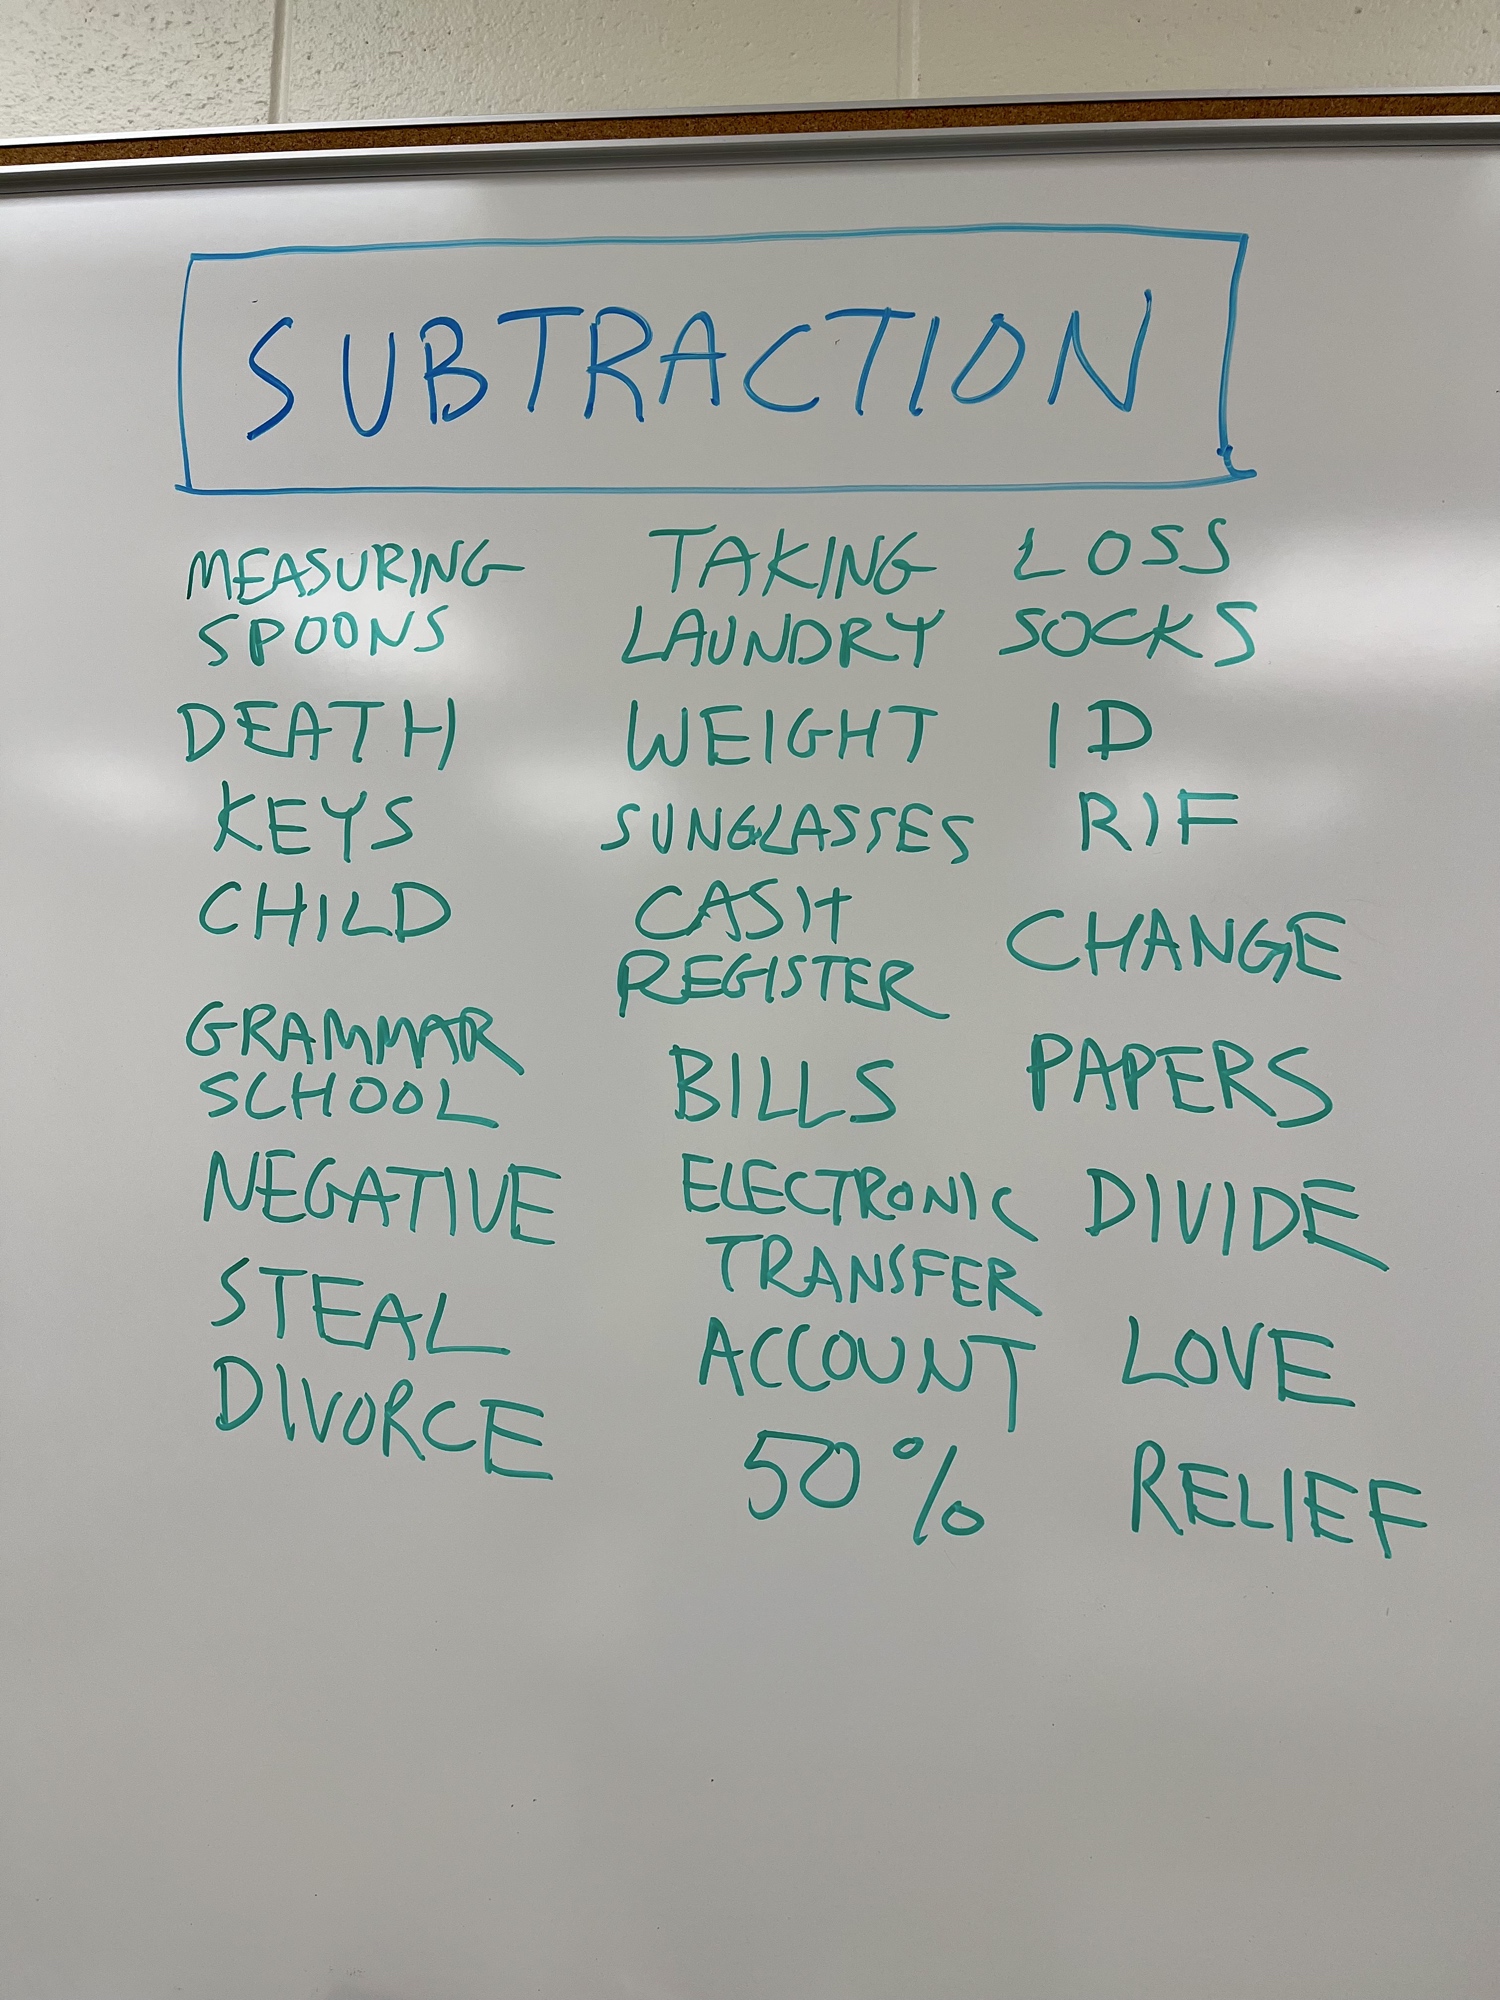 SUBTRACTION
MEASURING
SPOONS
DEATH
KEYS
CHILD
GRAMMAR
SCHOOL
NEGATIVE
STEAL
DIVORCE
TAKING
LAUNDRY
WEIGHT
SUNGLASSES
CASH
REGISTER
BILLS
ELECTRONIC
TRANSFER
ACCOUNT
50%
LOSS
SOCKS
ID
RIF
CHANGE
PAPERS
DIVIDE
LOVE
RELIEF